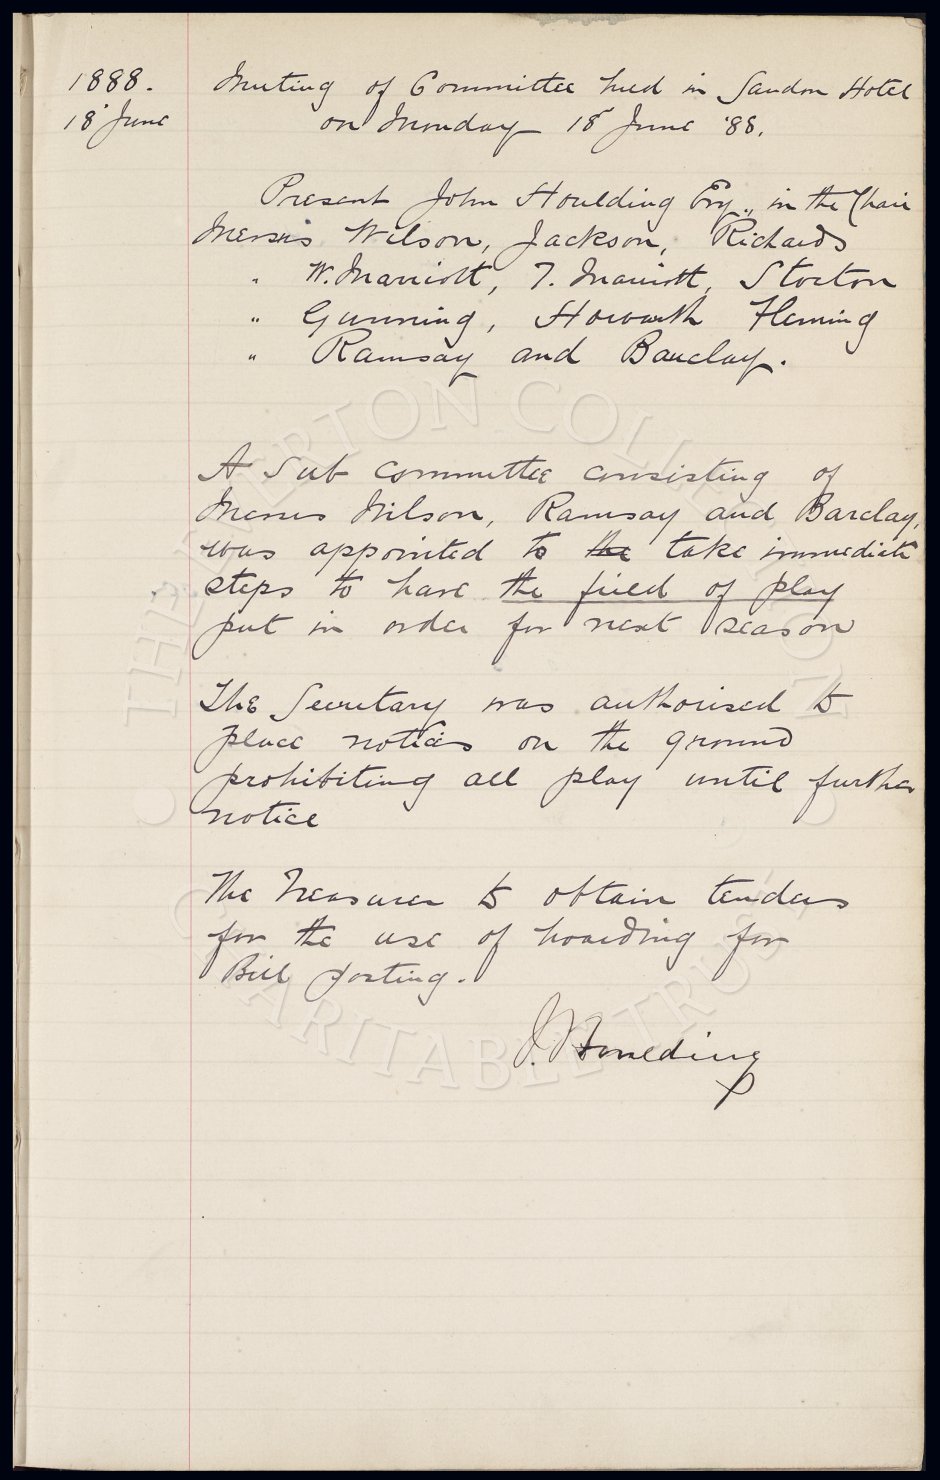 1888.
18 June
Meeting of Committee held in Sandon Hotel
on Monday 18 June '88.
Present John Houlding Esq., in the Chair
Messrs Wilson, Jackson, Richards
" W. Marriott, T. Marriott, Stockton
" Gunning, Howarth Fleming
" Ramsay and Barclay.
A Sub committee consisting of
Messrs Wilson, Ramsay and Barclay,
was appointed to the take immediate
steps to have the field of play
put in order for next season
The Secretary was authorised to
place notices on the ground
prohibiting all play until further
notice
The Treasurer to obtain tenders
for the use of hoarding for
Bill posting.
J. Houlding
THE EVERTON COLLECTION
CHARITABLE TRUST